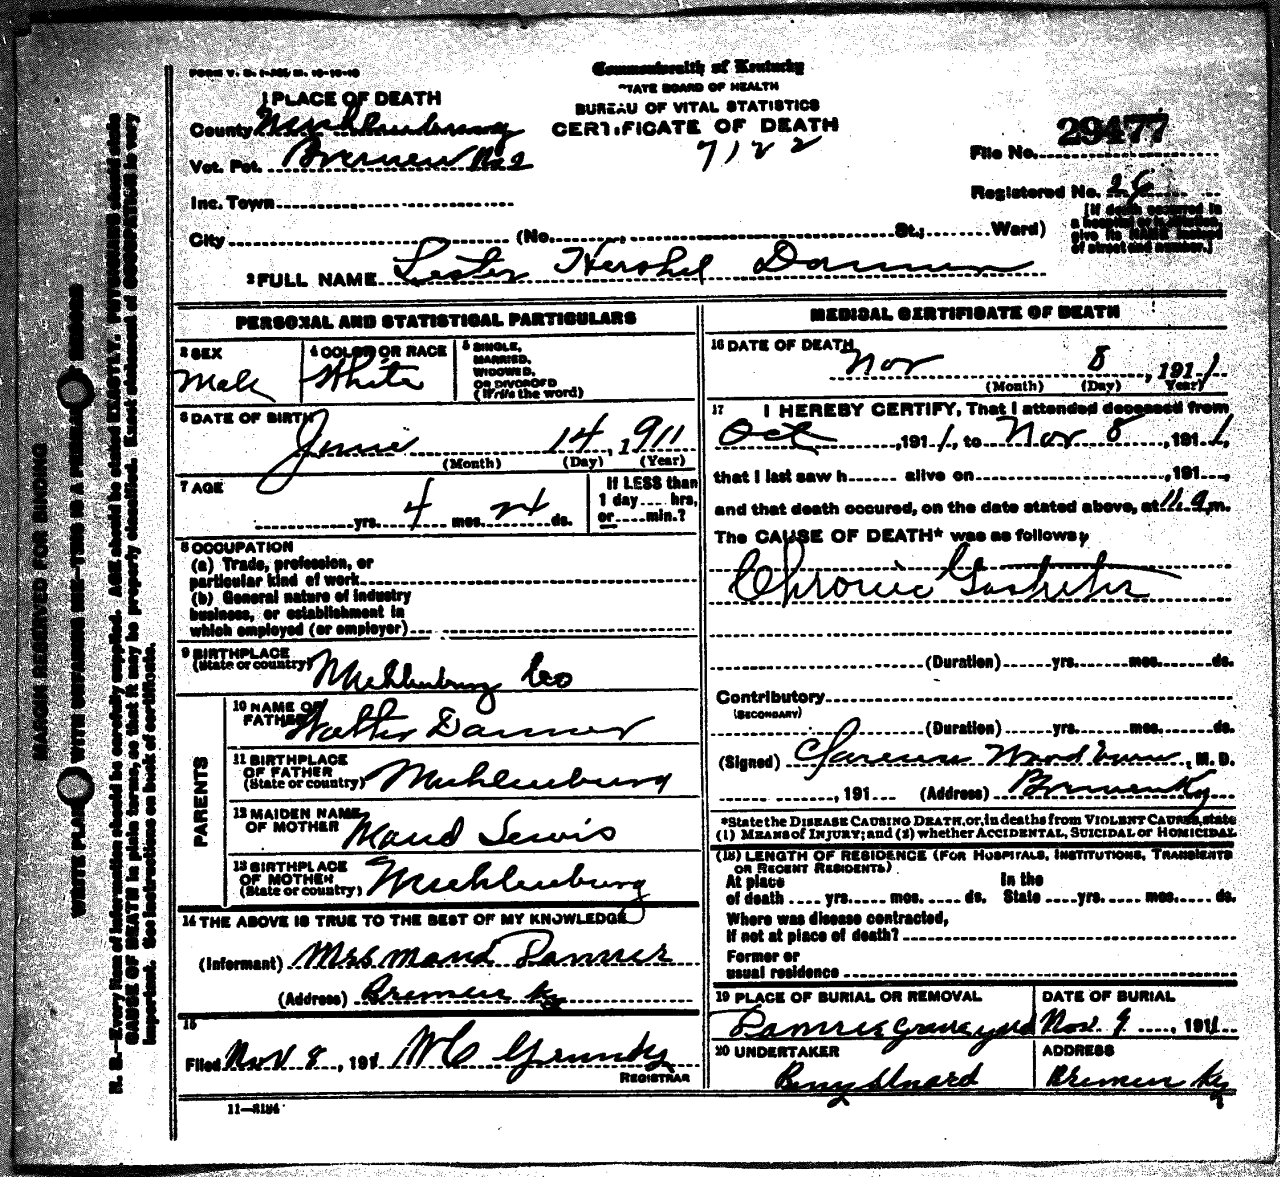 FORM V. S. 1-A
Commonwealth of Kentucky
STATE BOARD OF HEALTH
BUREAU OF VITAL STATISTICS
CERTIFICATE OF DEATH
7122
1 PLACE OF DEATH
County Muhlenburg
Vot. Pct. Bremen No 2
Inc. Town
City (No. St.; Ward)
File No. 29477
Registered No. 26
[If death occurred in a hospital or institution, give its NAME instead of street and number.]
2 FULL NAME Lester Hershel Danner
PERSONAL AND STATISTICAL PARTICULARS
3 SEX
Male
4 COLOR OR RACE
White
5 SINGLE, MARRIED, WIDOWED, OR DIVORCED (Write the word)
6 DATE OF BIRTH
June 14, 1911
(Month) (Day) (Year)
7 AGE
yrs. 4 mos. 24 ds.
If LESS than 1 day hrs, or min.?
8 OCCUPATION
(a) Trade, profession, or
particular kind of work
(b) General nature of industry
business, or establishment in
which employed (or employer)
9 BIRTHPLACE
(State or country) Muhlenburg Co
PARENTS
10 NAME OF FATHER Walter Danner
11 BIRTHPLACE OF FATHER
(State or country) Muhlenburg
12 MAIDEN NAME OF MOTHER Maud Lewis
13 BIRTHPLACE OF MOTHER
(State or country) Muehlenburg
14 THE ABOVE IS TRUE TO THE BEST OF MY KNOWLEDGE
(Informant) Mrs Maud Danner
(Address) Bremen Ky
15
Filed Nov 8, 1911 W C Grundy
REGISTRAR
11-8184
MEDICAL CERTIFICATE OF DEATH
16 DATE OF DEATH
Nov 8, 1911
(Month) (Day) Year)
17 I HEREBY CERTIFY, That I attended deceased from
Oct, 1911, to Nov 8, 1911,
that I last saw h alive on, 191,
and that death occured, on the date stated above, at 11 a.m.
The CAUSE OF DEATH* was as follows,
Chronic Gastritis
(Duration) yrs. mos. ds.
Contributory
(SECONDARY)
(Duration) yrs. mos. ds.
(Signed) Clarence Woodburn, M. D.
, 191 (Address) Bremen Ky
*State the DISEASE CAUSING DEATH, or, in deaths from VIOLENT CAUSES, state
(1) MEANS of INJURY; and (2) whether ACCIDENTAL, SUICIDAL or HOMICIDAL
(18) LENGTH OF RESIDENCE (FOR HOSPITALS, INSTITUTIONS, TRANSIENTS
OR RECENT RESIDENTS)
At place of death yrs. mos. ds. In the State yrs. mos. ds.
Where was disease contracted,
If not at place of death?
Former or
usual residence
19 PLACE OF BURIAL OR REMOVAL
Danner graveyard
DATE OF BURIAL
Nov. 9, 1911
20 UNDERTAKER
ADDRESS
Bremen Ky
MARGIN RESERVED FOR BINDING
WRITE PLAINLY WITH UNFADING INK—THIS IS A PERMANENT RECORD
N. B.—Every item of information should be carefully supplied. AGE should be stated EXACTLY. PHYSICIANS should state
CAUSE OF DEATH in plain terms, so that it may be properly classified. Exact statement of OCCUPATION is very
important. See instructions on back of certificate.